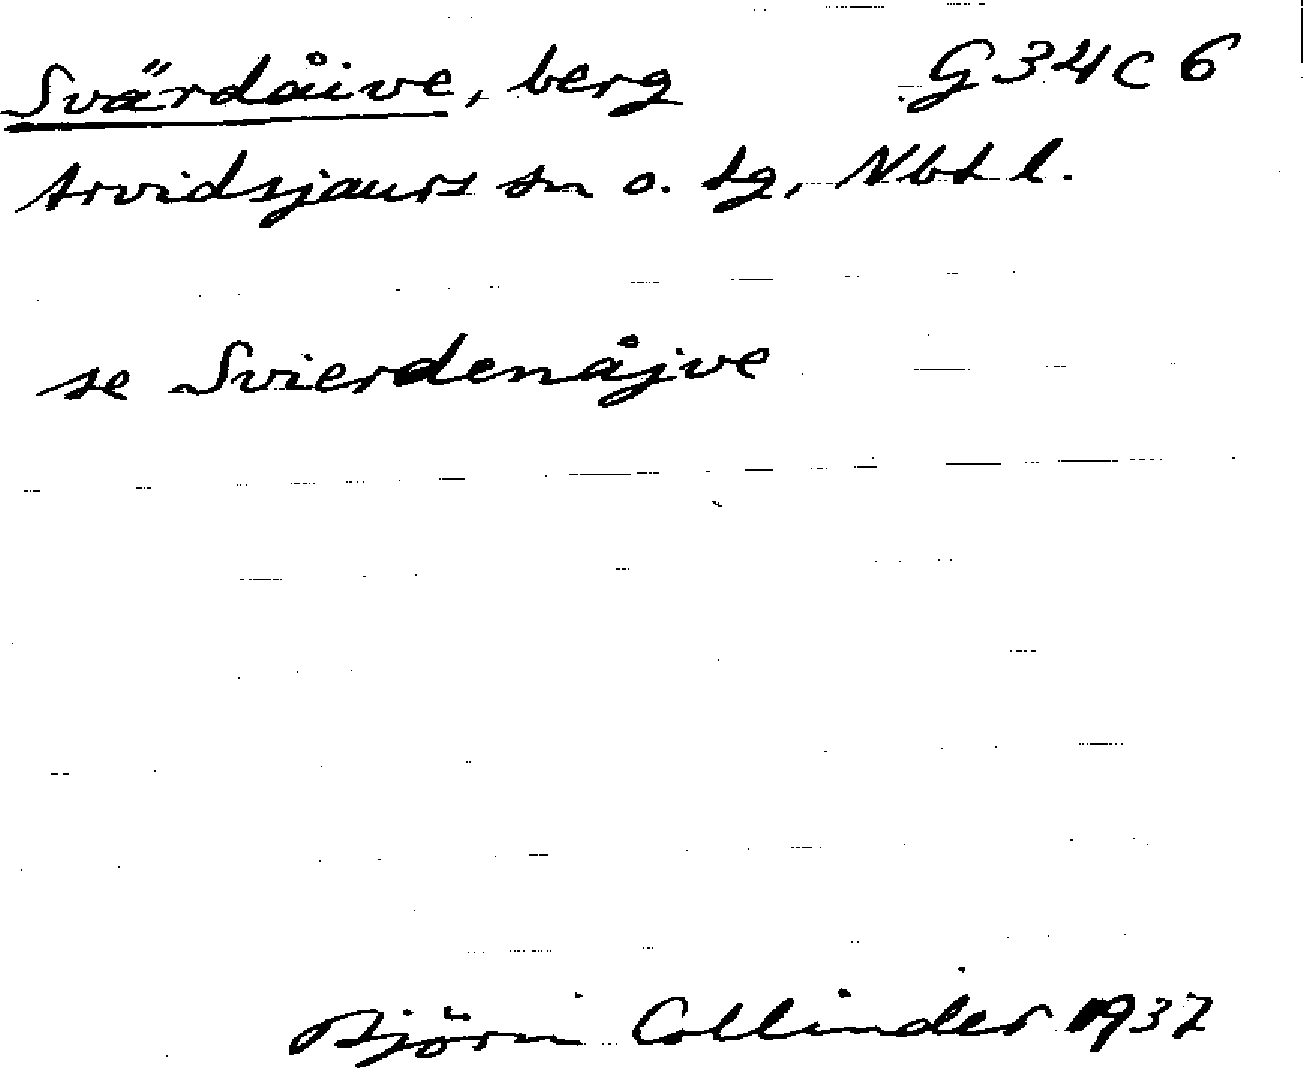 Svärdåive, berg G 34 C 6
Arvidsjaurs sn o. tg, Nbt l.
se Svierdenåjve
Björn Collinder 1937